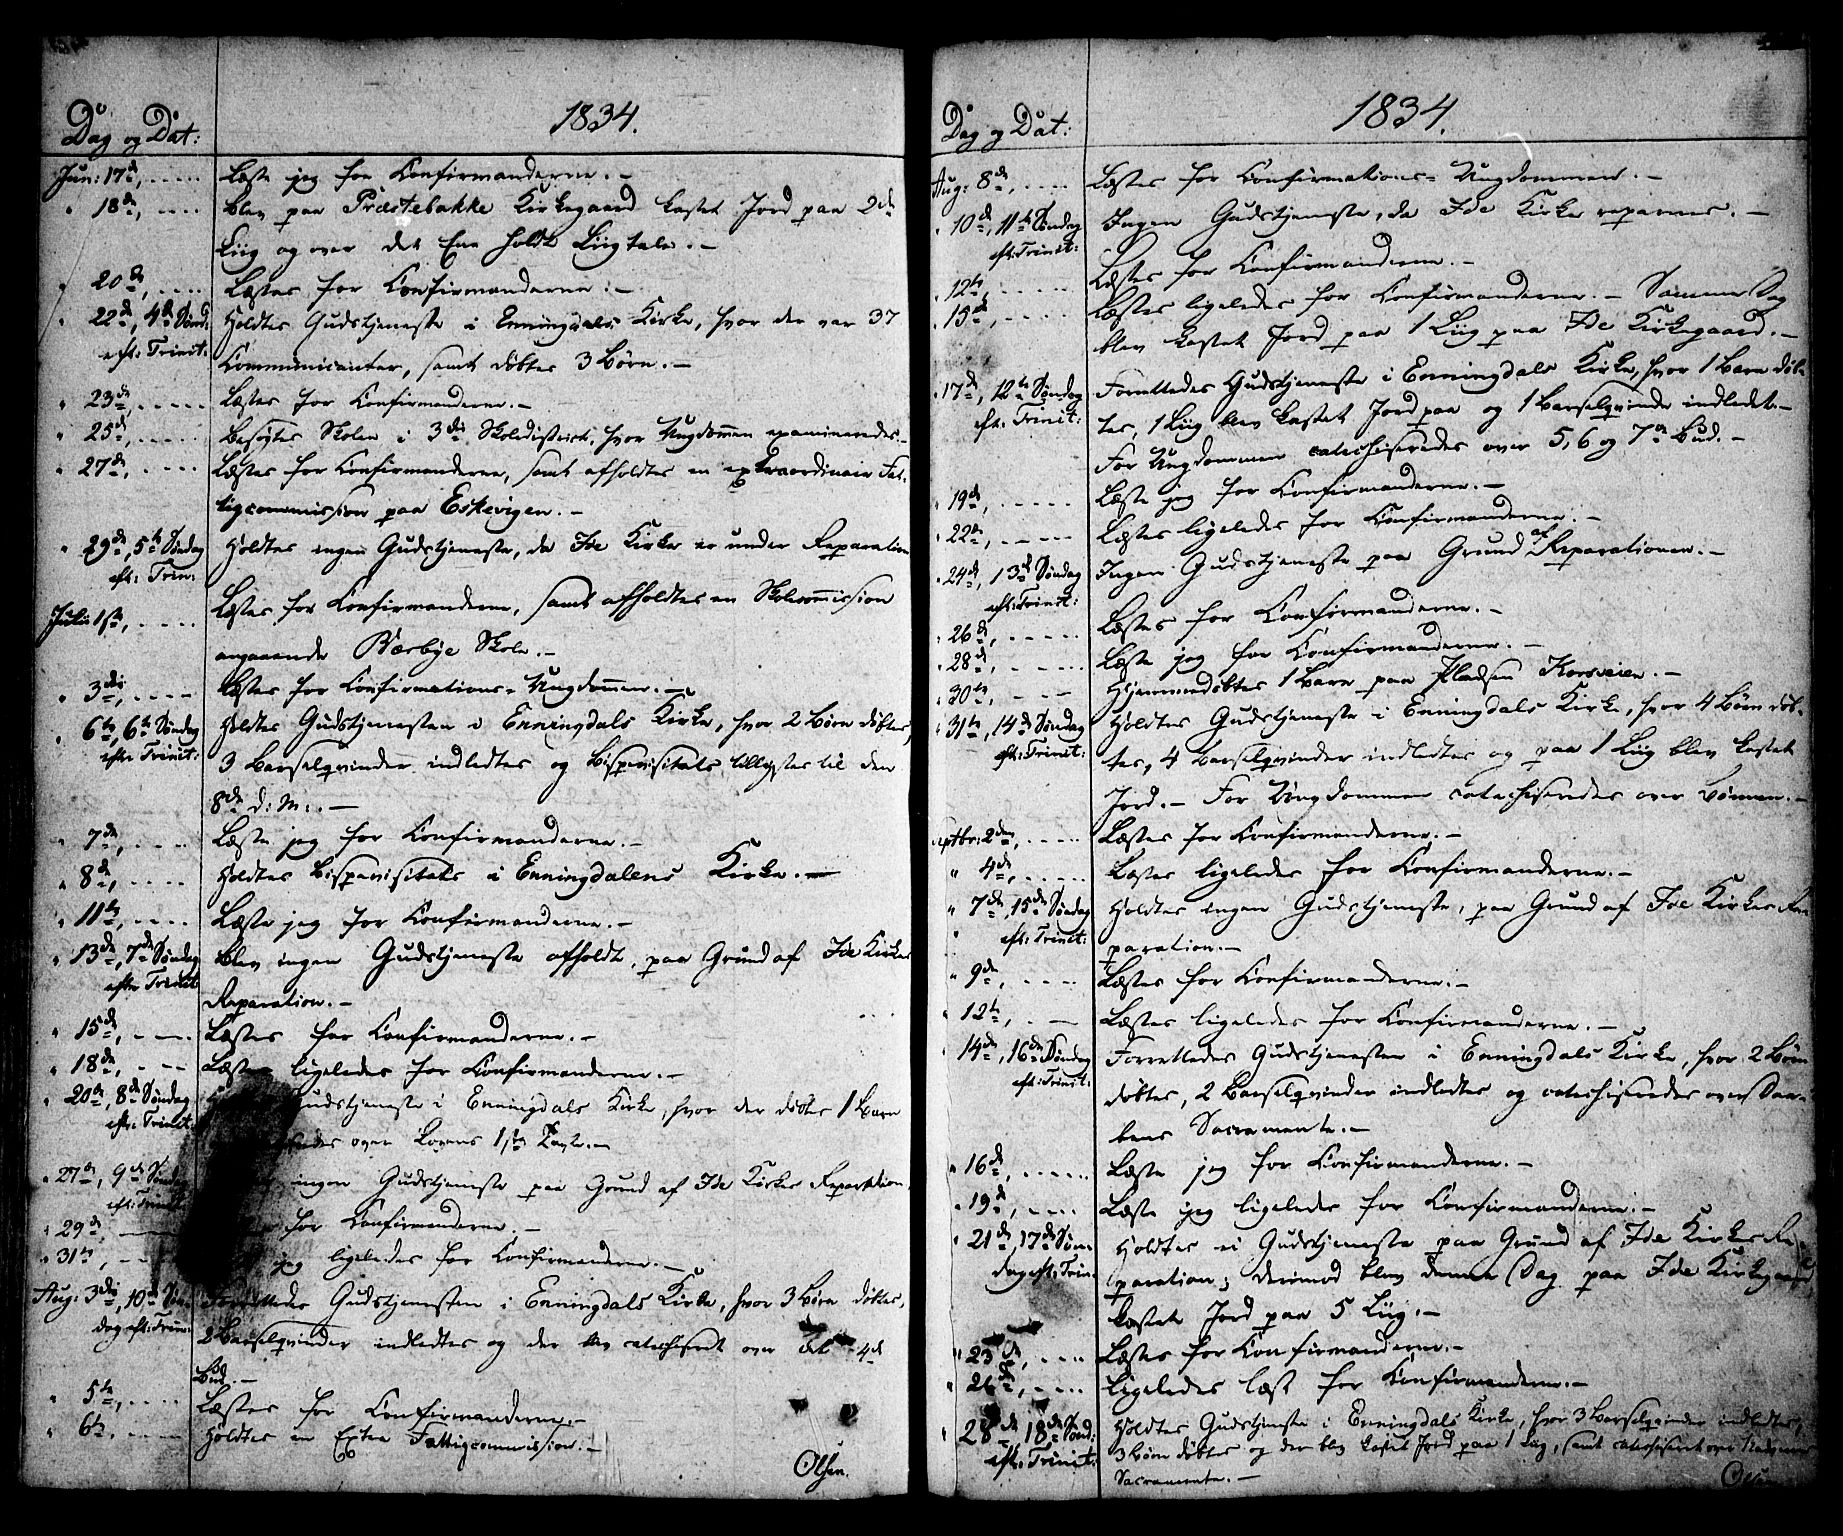 1834.
Dag og Dat:
Jun: 17de, Læste jeg for Confirmanderne. -
" 18de, blev paa Præstebakke Kirkegaard kastet Jord paa 2de
Liig og over det Ene holdt Liigtale. -
" 20de, Læstes for Confirmanderne. -
" 22de, 4de Sønd: Holdtes Gudstjeneste i Enningdals Kirke, hvor der var 37
eft: Trinit: Communicanter, samt døbtes 3 Børn. -
" 23de, Læstes for Confirmanderne. -
" 25de, besøgtes Skolen i 3die Skoledistrict, hvor Ungdommen examineredes. -
" 27de, Læstes for Confirmanderne, samt afholdtes en extraordinair Fat-
tigcommission paa Eskevigen. -
" 29de, 5te Søndag Holdtes ingen Gudstjeneste, da Ide Kirke er under Reparation
eft: Trin:
Juli 1ste, Læstes for Confirmanderne, samt afholdtes en Skolecommission
angaaende Bærbye Skole. -
" 3die, Læstes for Confirmations-Ungdommen. -
" 6te, 6te Søndag Holdtes Gudstjenesten i Enningdals Kirke, hvor 2 Børn døbtes,
efter Trinit: 3 Barselqvinder indledtes og Bispevisitats tillystes til den
8de d: M:. -
" 7de, Læste jeg for Confirmanderne. -
" 8de, Holdtes Bispevisitats i Enningdalens Kirke. -
" 11te, Læste jeg for Confirmanderne. -
" 13de, 7de Søndag blev ingen Gudstjeneste afholdt, paa Grund af Ide Kirkes
efter Trinit: Reparation. -
" 15de, Læstes for Confirmanderne. -
" 18de, Læstes ligeledes for Confirmanderne. -
" 20de, 8de Søndag Gudstjeneste i Enningdals Kirke, hvor der døbtes 1 Barn
eftr: Trinit: over Lovens 1ste Tavle. -
" 27de, 9de Søndag ingen Gudstjeneste paa Grund af Ide Kirkes Reparation.
eft: Trinit:
" 29de, for Confirmanderne. -
" 31te, jeg ligeledes for Confirmanderne. -
Aug: 3die, 10de Søn- Forrettedes Gudstjenesten i Enningdals Kirke, hvor 3 Børn døbtes,
dag eft: Trin: 2 Barselqvinder indledtes og der blev catechiseret over det 4de
Bud. -
" 5te, Læstes for Confirmanderne. -
" 6te, Holdtes en Extra Fattigcommission. -
Olsen.
1834.
Dag og Dat:
Aug: 8de, Læstes for Confirmations-Ungdommen. -
" 10de, 11te Søndag Ingen Gudstjeneste, da Ide Kirke repareres. -
eft: Trinit:
" 12te, Læstes for Confirmanderne. -
" 15de, Læstes ligeledes for Confirmanderne. - Samme Dag
blev kastet Jord paa 1 Liig paa Ide Kirkegaard. -
" 17de, 12te Søndag Forrettedes Gudstjeneste i Enningdals Kirke, hvor 1 Barn døb-
eft: Trinit: tes, 1 Liig blev kastet Jord paa og 1 Barselqvinde indledet. -
For Ungdommen catechiseredes over 5, 6 og 7de Bud. -
" 19de, Læste jeg for Confirmanderne. -
" 22de, Læstes ligeledes for Confirmanderne. -
" 24de, 13de Søndag Ingen Gudstjeneste paa Grund af Reparationen. -
eft: Trinit:
" 26de, Læstes for Confirmanderne. -
" 28de, Læste jeg for Confirmanderne. -
" 30te, Hjemmedøbtes 1 Barn paa Pladsen Korsveien. -
" 31te, 14de Søndag Holdtes Gudstjeneste i Enningdals Kirke, hvor 4 Børn døb-
eft: Trinit: tes, 4 Barselqvinder indledtes og paa 1 Liig blev kastet
Jord. - For Ungdommen catechiseredes over Bønnen. -
Septbr: 2den, Læstes for Confirmanderne. -
" 4de, Læstes ligeledes for Confirmanderne. -
" 7de, 15de Søndag Holdtes ingen Gudstjeneste, paa Grund af Ide Kirkes Re-
eft: Trinit: paration. -
" 9de, Læstes for Confirmanderne. -
" 12te, Læstes ligeledes for Confirmanderne. -
" 14de, 16de Søndag Forrettedes Gudstjenesten i Enningdals Kirke, hvor 2 Børn
eft: Trinit: døbtes, 2 Barselqvinder indledtes og catechiseredes over Daa-
bens Sacramente. -
" 16de, Læste jeg for Confirmanderne. -
" 19de, Læste jeg ligeledes for Confirmanderne. -
" 21de, 17de Søn- Holdtes ei Gudstjeneste paa Grund af Ide Kirkes Re-
dag eft: Trin: paration; derimod blev denne Dag paa Ide Kirkegaard
kastet Jord paa 5 Liig. -
" 23de, Læstes for Confirmanderne. -
" 26de, Ligeledes læst for Confirmanderne. -
" 28de, 18de Sønd: Holdtes Gudstjeneste i Enningdals Kirke, hvor 3 Barselqvinder indledtes,
eft: Trinit: 3 Børn døbtes og der blev kastet Jord paa 1 Liig, samt catechiseret over Nadverens
Sacramente. -
Olsen